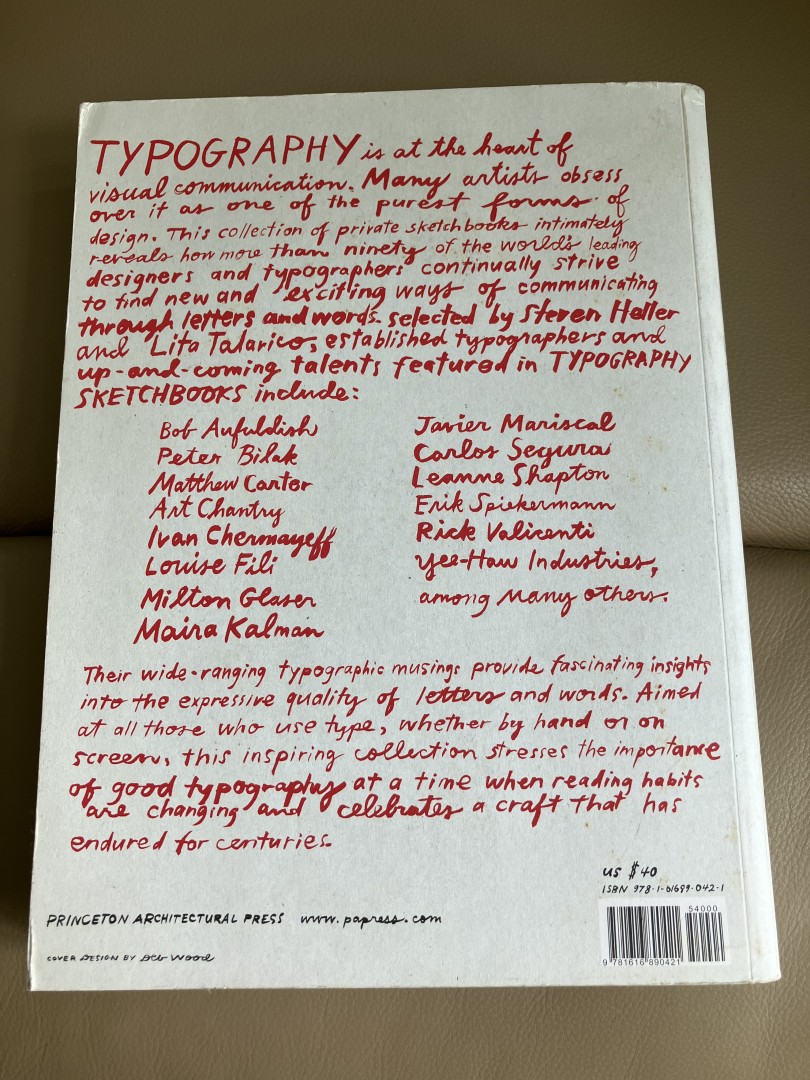 TYPOGRAPHY is at the heart of
visual communication. Many artists obsess
over it as one of the purest forms of
design. This collection of private sketchbooks intimately
reveals how more than ninety of the world's leading
designers and typographers continually strive
to find new and exciting ways of communicating
through letters and words. Selected by Steven Heller
and Lita Talarico, established typographers and
up-and-coming talents featured in TYPOGRAPHY
SKETCHBOOKS include:
Bob Aufuldish
Peter Bilak
Matthew Carter
Art Chantry
Ivan Chermayeff
Louise Fili
Milton Glaser
Maira Kalman
Javier Mariscal
Carlos Segura
Leanne Shapton
Erik Spiekermann
Rick Valicenti
Yee-Haw Industries,
among many others.
Their wide-ranging typographic musings provide fascinating insights
into the expressive quality of letters and words. Aimed
at all those who use type, whether by hand or on
screen, this inspiring collection stresses the importance
of good typography at a time when reading habits
are changing and celebrates a craft that has
endured for centuries.
US $40
ISBN 978-1-61689-042-1
54000
9 781616 890421
PRINCETON ARCHITECTURAL PRESS www.papress.com
COVER DESIGN BY Deb Wood